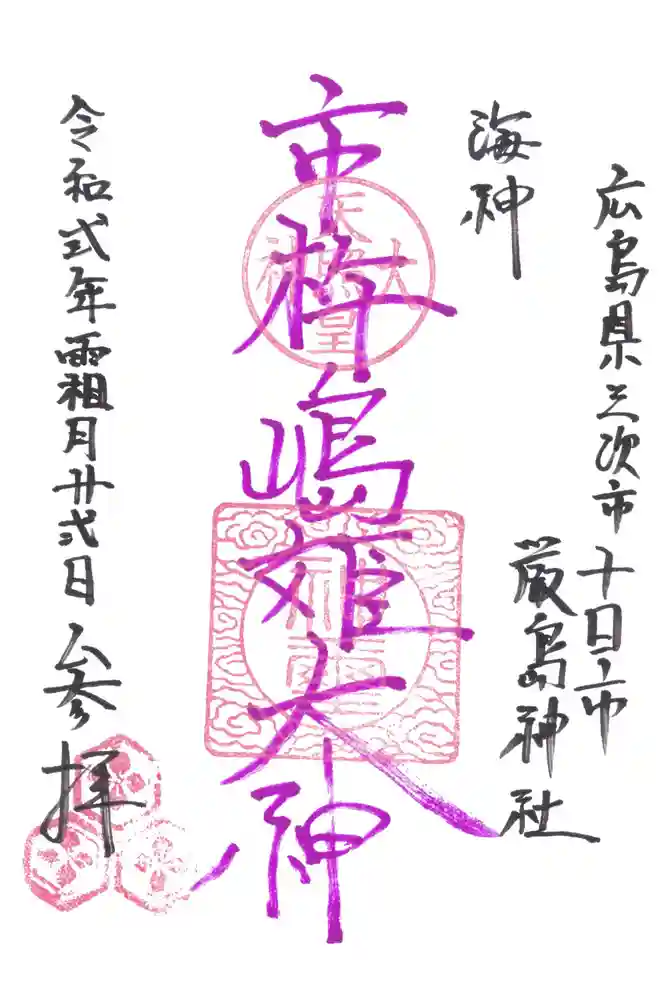 広島県三次市十日市
厳島神社
海神
市杵嶋姫大神
天照皇
大神
令和弐年霜月廿弐日
参拝